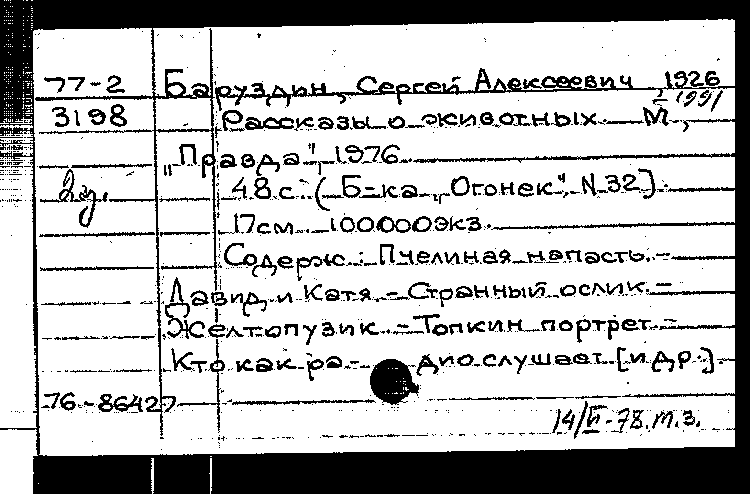 77-2 Баруздин, Сергей Алексеевич, 1926
-1991
3198 Рассказы о животных. М.,
"Правда", 1976.
48 с. (Б-ка "Огонек", N 32).
17см 100000экз.
Содерж.: Пчелиная напасть.-
Давид и Катя.-Странный ослик.-
Желтопузик.-Топкин портрет.-
Кто как ра- дио слушает. [и др.]
76-86427
14/II-78. т.з.